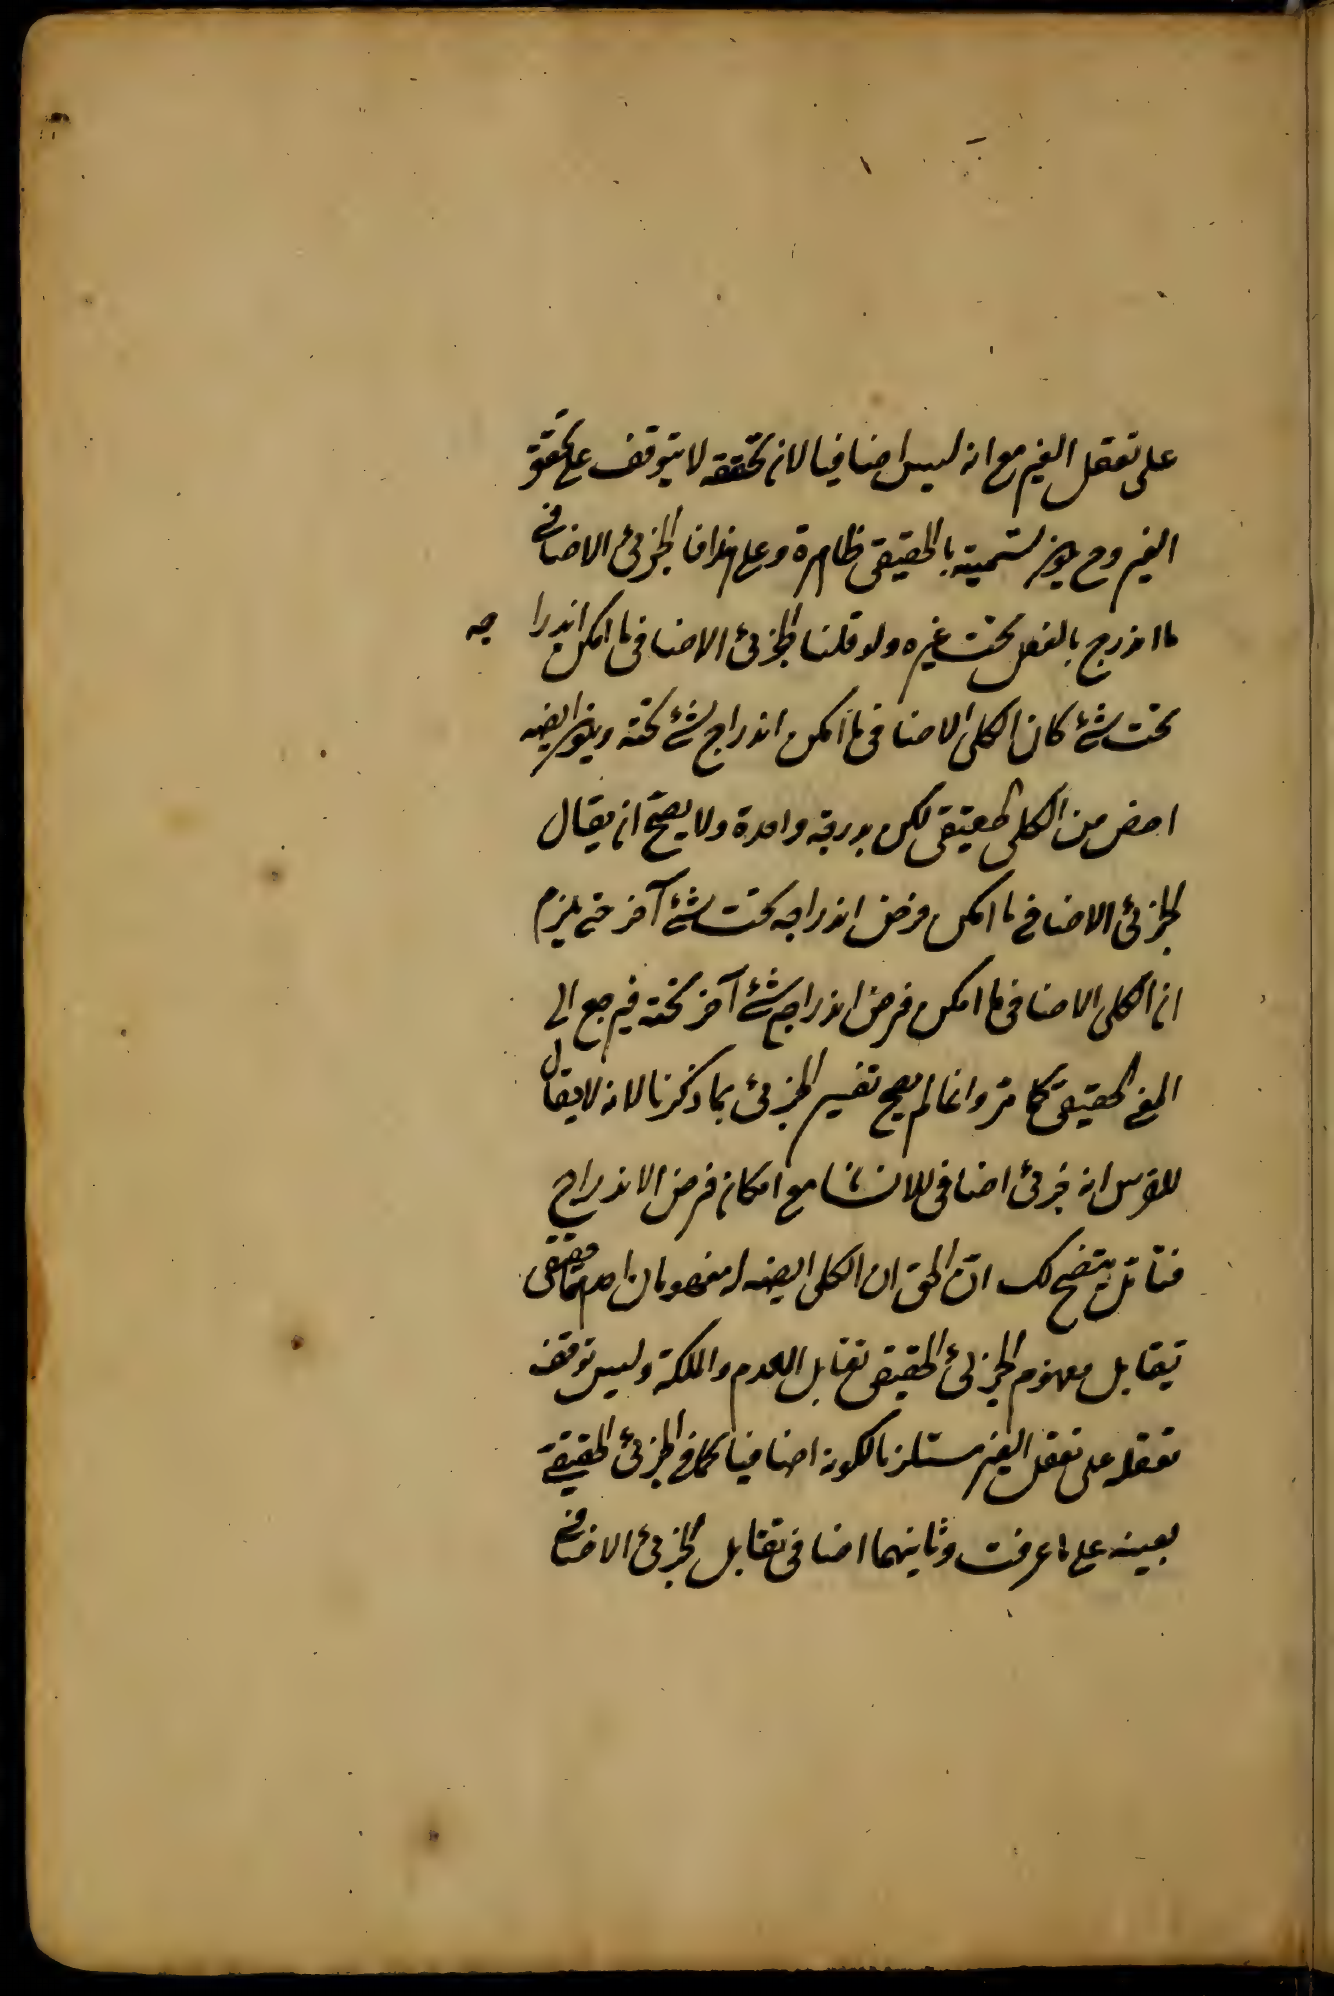 على تعقل الغير مع انه ليس اضافيا لان تحققه لا يتوقف على تحقق
الغير وح يوز تسميته بالحقيقى ظاهرة وعلى هذا فالجزئى الاضافى
ما اندرج بالفعل تحت غيره ولو قلنا الجزئى الاضافى ما امكن اندراجه
تحت شئ كان الكلى الاضافى ما امكن اندراج شئ تحته ايضه
اخص من الكلى الحقيقى لكن بدرجة واحدة ولا يصح ان يقال
الجزئى الاضافى ما امكن فرض اندراجه تحت شئ آخر حتى يلزم
ان الكلى الاضافى ما امكن فرض اندراج شئ آخر تحته فيرجع الى
المعنى الحقيقى كما مر وانما لم يصح تفسير الجزئى بما ذكرنا لانه لا يقال
للفرس انه جزئى اضافى للانسان مع امكان فرض الاندراج
فتأمل يتضح لك ان الحق ان الكلى ايضه له مفهومان احدهما حقيقى
يقابل مفهوم الجزئى الحقيقى تقابل العدم والملكة وليس توقف
تعقله على تعقل الغير مستلزما لكونه اضافيا كما فى الجزئى الحقيقى
بعينه على ما عرفت وثانيهما اضافى تقابل الجزئى الاضافى